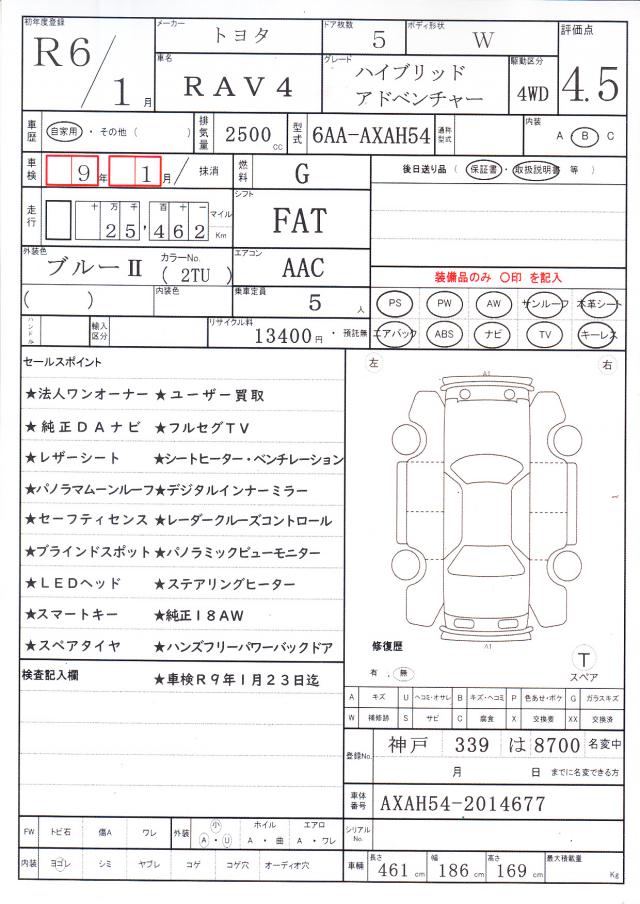 初年度登録 R6/1月 メーカー トヨタ ドア枚数 5 ボディ形状 W 評価点 4.5
車名 RAV4 グレード ハイブリッド アドベンチャー 駆動区分 4WD
車歴 自家用・その他( ) 排気量 2500cc 型式 6AA-AXAH54 通称型式 内装 A・B・C
車検 9年 1月/ 抹消 燃料 G 後日送り品 ( 保証書・取扱説明書 等 )
走行 十万千百十一 25,462 マイル Km シフト FAT
外装色 ブルーⅡ カラーNo. ( 2TU ) エアコン AAC 装備品のみ 〇印 を記入
( ) 内装色 乗車定員 5人 PS PW AW サンルーフ 本革シート
ハンドル 輸入区分 リサイクル料 13400円・預託無 エアバック ABS ナビ TV キーレス
セールスポイント
★法人ワンオーナー ★ユーザー買取
★純正DAナビ ★フルセグTV
★レザーシート ★シートヒーター・ベンチレーション
★パノラマムーンルーフ★デジタルインナーミラー
★セーフティセンス ★レーダークルーズコントロール
★ブラインドスポット★パノラミックビューモニター
★LEDヘッド ★ステアリングヒーター
★スマートキー ★純正18AW
★スペアタイヤ ★ハンズフリーパワーバックドア
検査記入欄 ★車検R9年1月23日迄
左 右
A1
A1
修復歴
有 . 無
T
スペア
A キズ U ヘコミ・オサレ B キズ・ヘコミ P 色あせ・ボケ G ガラスキズ
W 補修跡 S サビ C 腐食 X 交換要 XX 交換済
登録No. 神戸 339 は 8700 名変中
月 日 までに名変できる方
車体番号 AXAH54-2014677
シリアルNo.
FW トビ石 傷A ワレ 外装 小 A・U ホイル A・曲 エアロ A・ワレ
内装 ヨゴレ シミ ヤブレ コゲ コゲ穴 オーディオ穴
車輌 長さ 461cm 幅 186cm 高さ 169cm 最大積載量 Kg